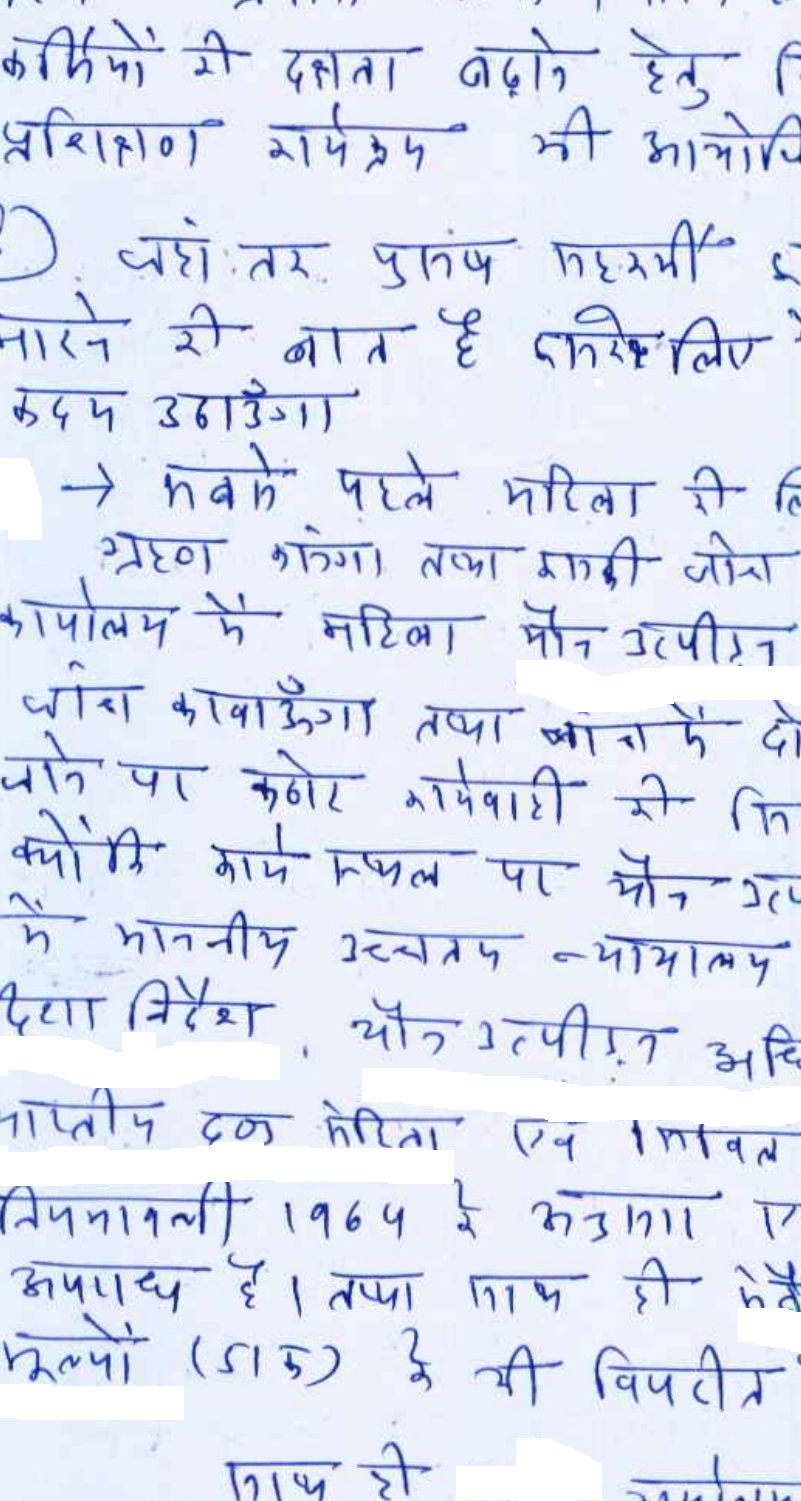 कर्मियों की दक्षता बढ़ाने हेतु
प्रशिक्षण कार्यक्रम भी आयोजि
जहां तक पुरुष सहकर्मी
की बात है इसके लिए
कदम उठाउँगा
→ सबसे पहले महिला की
ग्रहण करुंगा तथा उसकी जांच
कार्यालय में महिला यौन उत्पीड़न
जांच करवाऊँगा तथा जांच में दो
जाने पर कठोर कार्यवाही की
क्योंकि कार्य स्थल पर यौन उत्प
में माननीय उच्चतम न्यायालय
दिशा निर्देश, यौन उत्पीड़न अधि
भारतीय दण्ड संहिता एवं सिविल
नियमावली 1964 के अनुसार ए
अपराध है। तथा साथ ही
मूल्यों के भी विपरीत
साथ ही